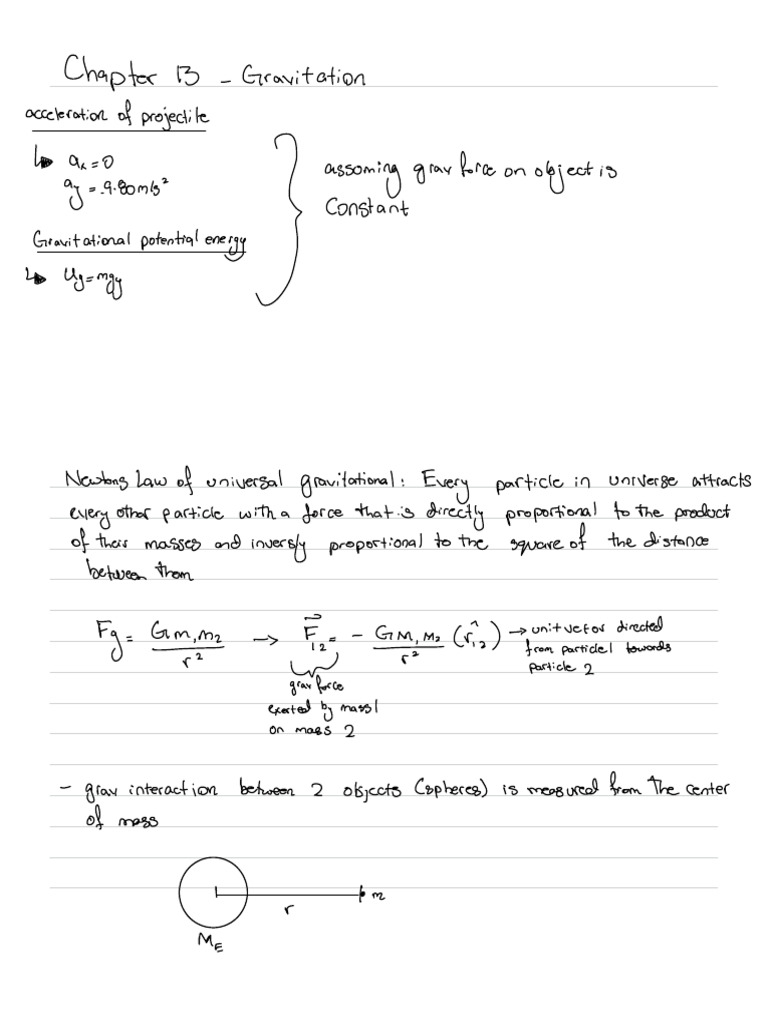 Chapter 13 - Gravitation
acceleration of projectile
↳ aₓ = 0
a_y = -9.80 m/s²
assuming grav force on object is
Constant
Gravitational potential energy
↳ U_g = mgy
Newtons Law of universal gravitational: Every particle in universe attracts
every other particle with a force that is directly proportional to the product
of their masses and inversly proportional to the square of the distance
between them
F_g = G m₁ m₂ / r² → F⃗₁₂ = - G M₁ M₂ / r² (r̂₁₂) → unit vector directed
from particle 1 towards
particle 2
grav force
exerted by mass 1
on mass 2
- grav interaction between 2 objects (spheres) is measured from the center
of mass
r
m
M_E